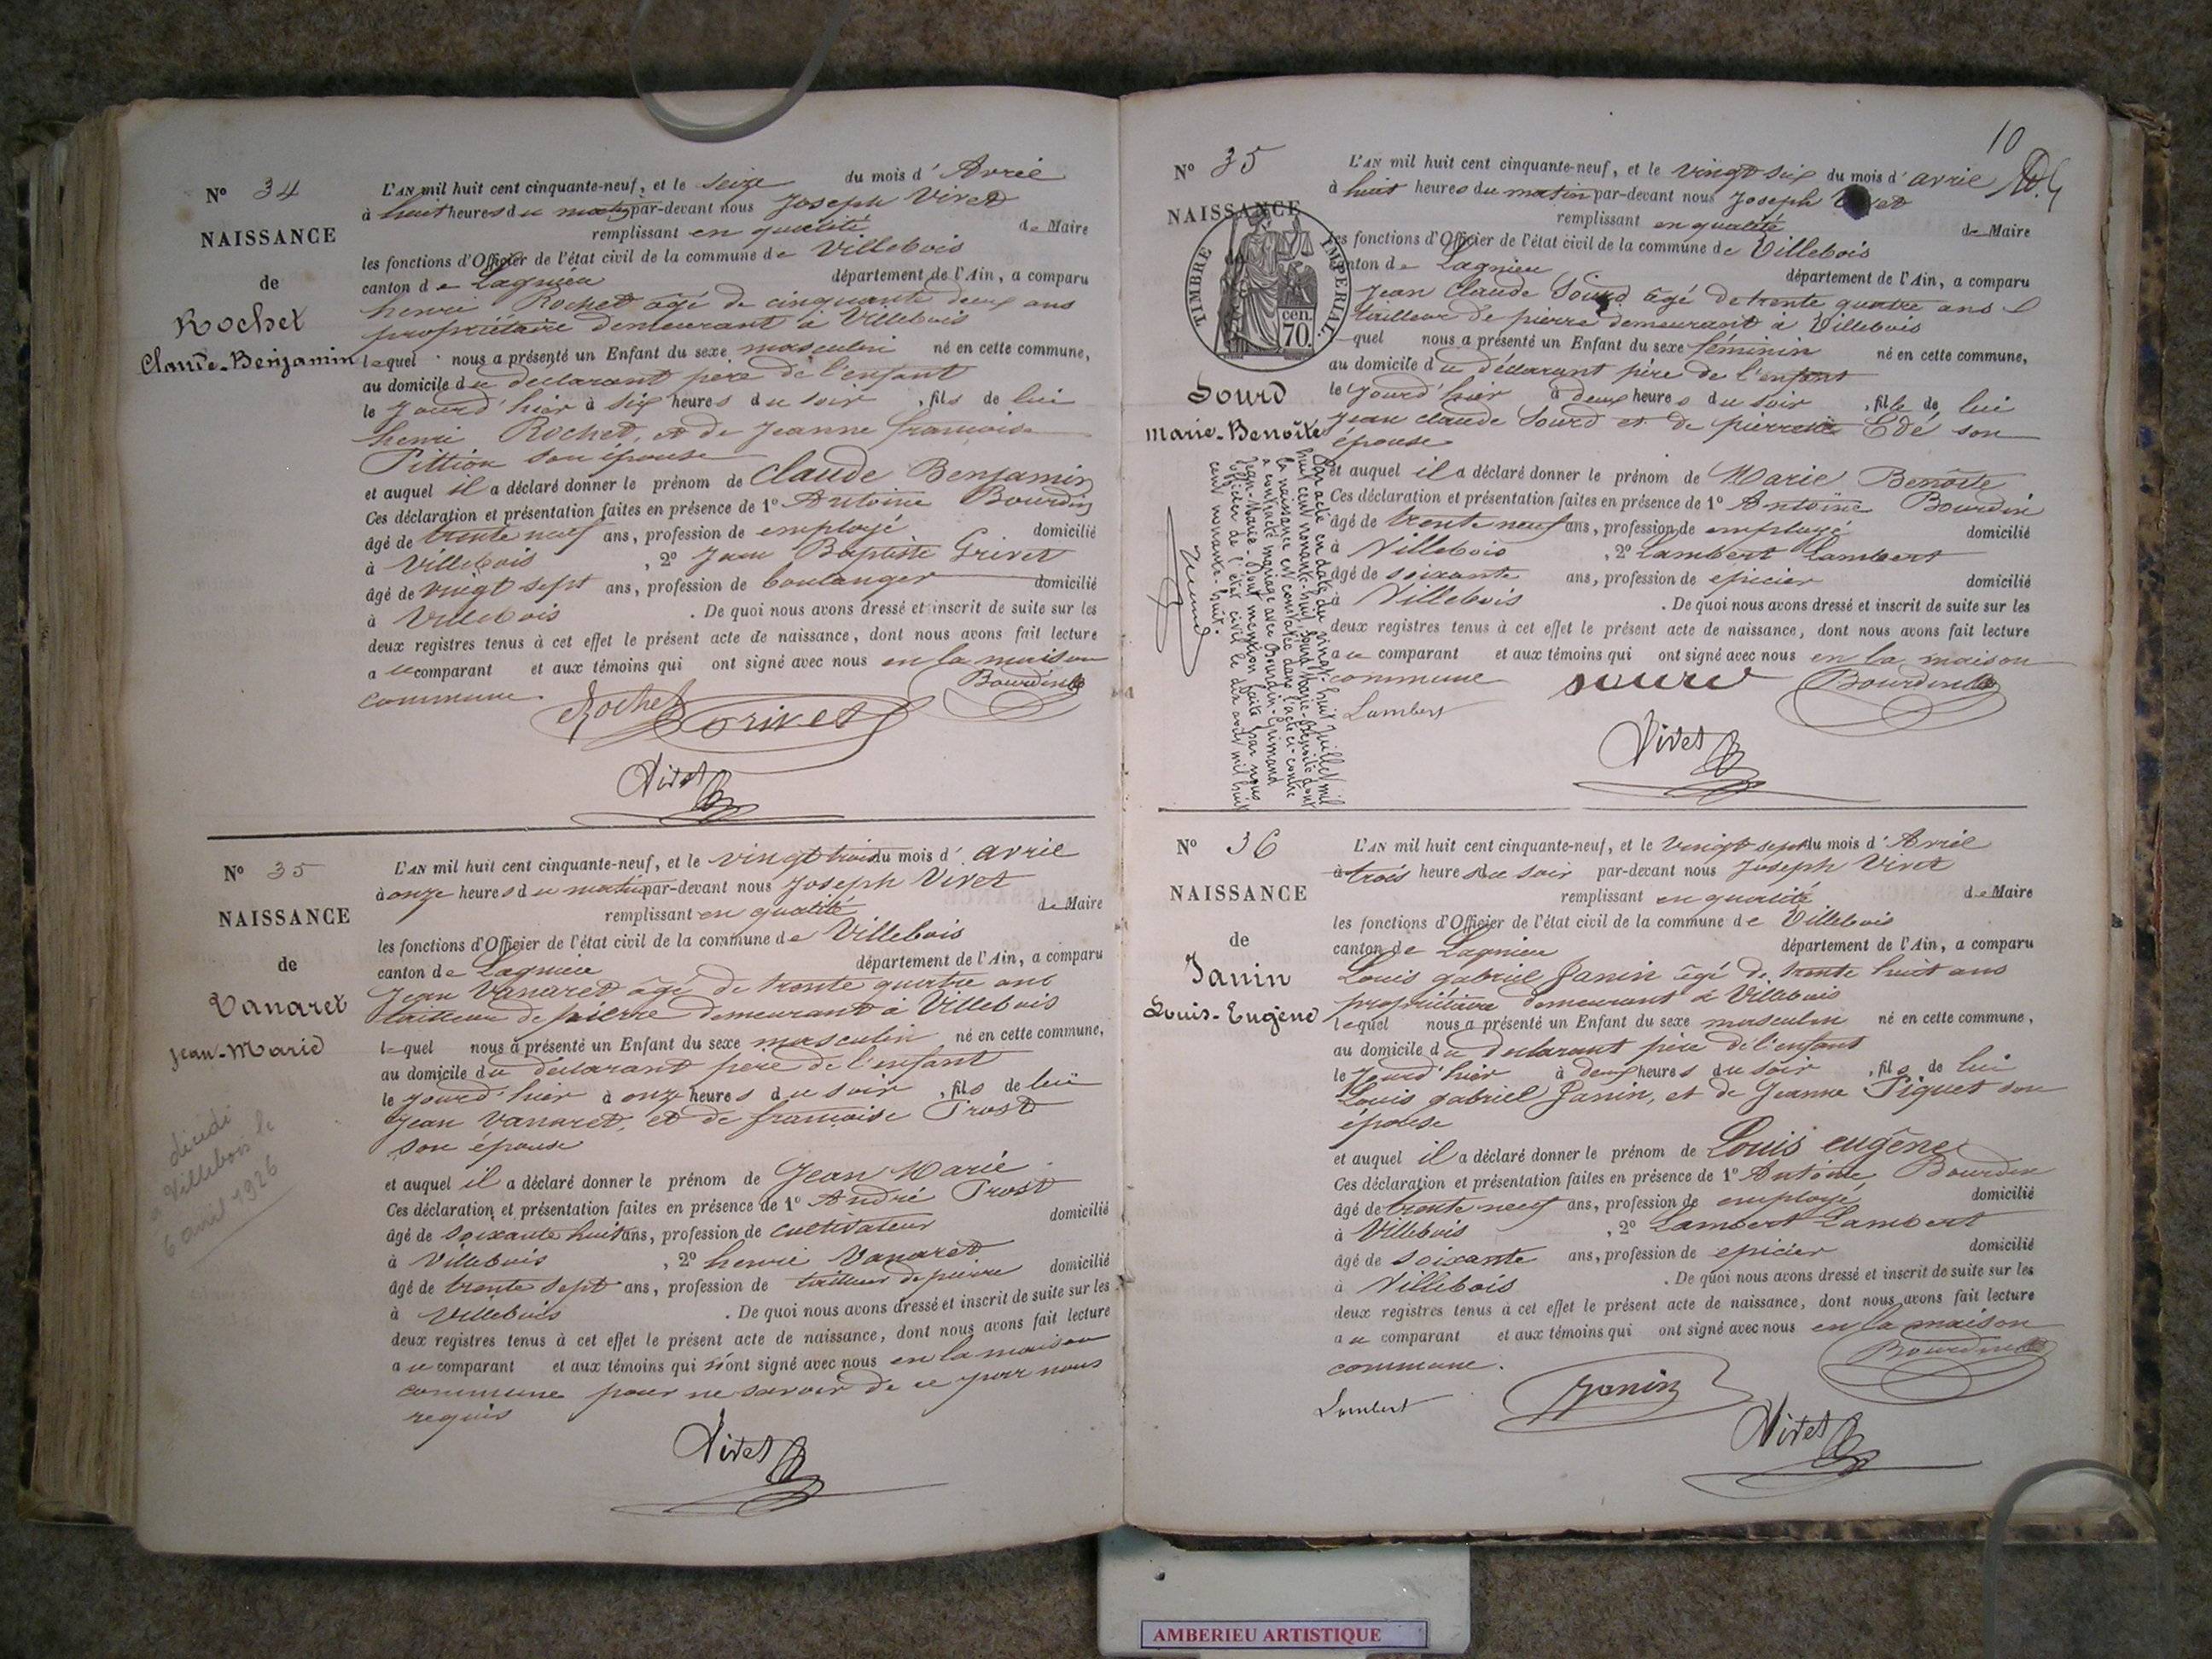 N° 34
NAISSANCE
de
Rochet
Claude-Benjamin
L'AN mil huit cent cinquante-neuf, et le seize du mois d'Avril
à huit heures du matin par-devant nous Joseph Vivet
remplissant en qualité de Maire
les fonctions d'Officier de l'état civil de la commune de Villebois
canton de Lagnieu département de l'Ain, a comparu
henri Rochet âgé de cinquante deux ans
propriétaire demeurant à Villebois
lequel nous a présenté un Enfant du sexe masculin né en cette commune,
au domicile du déclarant père de l'enfant
le jourd'hier à six heures du soir, fils de lui
henri Rochet, et de Jeanne francoise
Pittion son épouse
et auquel il a déclaré donner le prénom de Claude Benjamin
Ces déclaration et présentation faites en présence de 1° Antoine Bourdin
âgé de trente neuf ans, profession de employé domicilié
à Villebois, 2° Jean Baptiste Grivet
âgé de vingt sept ans, profession de boulanger domicilié
à Villebois. De quoi nous avons dressé et inscrit de suite sur les
deux registres tenus à cet effet le présent acte de naissance, dont nous avons fait lecture
au comparant et aux témoins qui ont signé avec nous en la maison
commune.
Bourdin
Rochet Grivet
Vivet
N° 35
NAISSANCE
de
Vanaret
Jean-Marie
décédé
à Villebois le
6 avril 1926
L'AN mil huit cent cinquante-neuf, et le vingt trois du mois d'avril
à onze heures du matin par-devant nous Joseph Vivet
remplissant en qualité de Maire
les fonctions d'Officier de l'état civil de la commune de Villebois
canton de Lagnieu département de l'Ain, a comparu
Jean Vanaret âgé de trente quatre ans
tailleur de pierre demeurant à Villebois
lequel nous a présenté un Enfant du sexe masculin né en cette commune,
au domicile du déclarant père de l'enfant
le jourd'hier à onze heures du soir, fils de lui
Jean Vanaret, et de francoise Trost
son épouse
et auquel il a déclaré donner le prénom de Jean Marie
Ces déclaration et présentation faites en présence de 1° André Trost
âgé de soixante huit ans, profession de cultivateur domicilié
à Villebois, 2° henri Vanaret
âgé de trente sept ans, profession de tailleur de pierre domicilié
à Villebois. De quoi nous avons dressé et inscrit de suite sur les
deux registres tenus à cet effet le présent acte de naissance, dont nous avons fait lecture
au comparant et aux témoins qui n'ont signé avec nous en la maison
commune pour ne savoir de ce par nous
requis
Vivet
10
N° 35
NAISSANCE
TIMBRE IMPERIAL.
cen.
70.
Sourd
Marie-Benoîte
Par acte en date du vingt-huit juillet mil
huit cent nonante-huit Sourd Marie-Benoîte dont
la naissance est constatée dans l'acte ci-contre
a contracté mariage avec Bourdin-Grimaud
Jean-Marie. Dont mention faite par nous
Officier de l'état civil le dix août mil huit
cent nonante-huit.
L'AN mil huit cent cinquante-neuf, et le vingt six du mois d'avril
à huit heures du matin par-devant nous Joseph Vivet
remplissant en qualité de Maire
les fonctions d'Officier de l'état civil de la commune de Villebois
canton de Lagnieu département de l'Ain, a comparu
Jean Claude Sourd âgé de trente quatre ans
tailleur de pierre demeurant à Villebois
quel nous a présenté un Enfant du sexe féminin né en cette commune,
au domicile du déclarant père de l'enfant
le jourd'hier à deux heures du soir, fille de lui
Jean claude Sourd et de pierrette Edé son
épouse
et auquel il a déclaré donner le prénom de Marie Benoîte
Ces déclaration et présentation faites en présence de 1° Antoine Bourdin
âgé de trente neuf ans, profession de employé domicilié
à Villebois, 2° Lambert Lambert
âgé de soixante ans, profession de épicier domicilié
à Villebois. De quoi nous avons dressé et inscrit de suite sur les
deux registres tenus à cet effet le présent acte de naissance, dont nous avons fait lecture
au comparant et aux témoins qui ont signé avec nous en la maison
commune Sourd Bourdin
Lambert
Vivet
N° 36
NAISSANCE
de
Janin
Louis-Eugène
L'AN mil huit cent cinquante-neuf, et le vingt sept du mois d'Avril
à trois heures du soir par-devant nous Joseph Vivet
remplissant en qualité de Maire
les fonctions d'Officier de l'état civil de la commune de Villebois
canton de Lagnieu département de l'Ain, a comparu
Louis gabriel Janin âgé de trente huit ans
propriétaire demeurant à Villebois
lequel nous a présenté un Enfant du sexe masculin né en cette commune,
au domicile du déclarant père de l'enfant
le jourd'hier à deux heures du soir, fils de lui
Louis gabriel Janin, et de Jeanne Piquet son
épouse
et auquel il a déclaré donner le prénom de Louis eugène
Ces déclaration et présentation faites en présence de 1° Antoine Bourdin
âgé de trente neuf ans, profession de employé domicilié
à Villebois, 2° Lambert Lambert
âgé de soixante ans, profession de epicier domicilié
à Villebois. De quoi nous avons dressé et inscrit de suite sur les
deux registres tenus à cet effet le présent acte de naissance, dont nous avons fait lecture
au comparant et aux témoins qui ont signé avec nous en la maison
commune. Bourdin
Lambert Janin
Vivet
AMBERIEU ARTISTIQUE